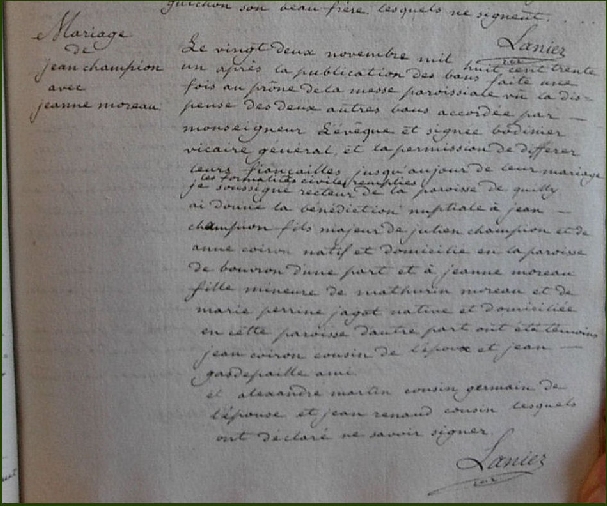 guichon son beau frère lesquels ne signent. . . .
Lanier
Mariage
de
jean champion
avec
jeanne moreau
Le vingt deux novembre mil huit cent trente
un après la publication des bans faite une
fois au prône de la messe paroissiale vu la dis-
pense des deux autres bans accordée par —
monseigneur L'évêque et signée bodinier
vicaire général, et la permission de differer
leurs fiançailles jusqu'au jour de leur mariage
les formalités civiles remplies
je soussigné recteur de la paroisse de quilly
ai donné la bénédiction nuptiale à jean —
champion fils majeur de julien champion et de
anne coiron natif et domicilié en la paroisse
de bouvron d'une part et à jeanne moreau
fille mineure de mathurin moreau et de
marie perrine jagot native et domiciliée
en cette paroisse d'autre part ont été témoins
jean coiron cousin de l'époux et jean —
gasdepaille ami
et alexandre martin cousin germain de
l'épouse et jean renaud cousin lesquels
ont déclaré ne savoir signer
Lanier
rec